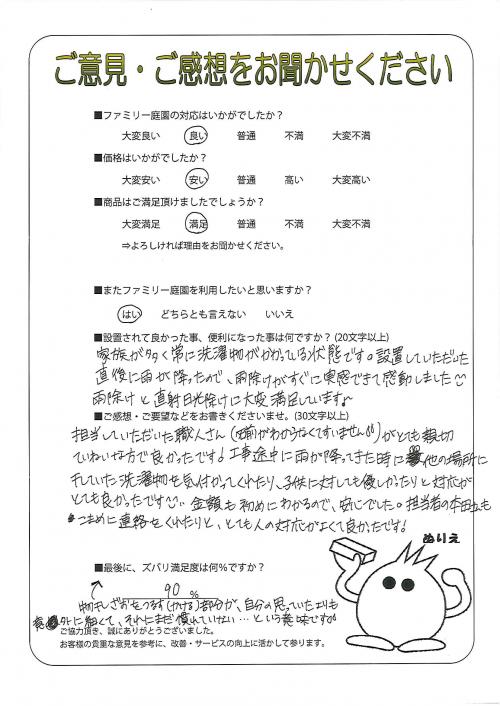 ご意見・ご感想をお聞かせください
■ファミリー庭園の対応はいかがでしたか？
大変良い 良い 普通 不満 大変不満
■価格はいかがでしたか？
大変安い 安い 普通 高い 大変高い
■商品はご満足頂けましたでしょうか？
大変満足 満足 普通 不満 大変不満
⇒よろしければ理由をお聞かせください。
■またファミリー庭園を利用したいと思いますか？
はい どちらとも言えない いいえ
■設置されて良かった事、便利になった事は何ですか？(20文字以上)
家族が多く常に洗濯物がかかっている状態です。設置していただいた
直後に雨が降ったので、雨除けがすぐに実感できて感動しました
雨除けと直射日光除けに大変満足しています。
■ご感想・ご要望などをお書きくださいませ。(30文字以上)
担当していただいた職人さん(名前がわからなくてすいません)がとても親切
ていねいな方で良かったです！工事途中に雨が降ってきた時に他の場所に
干していた洗濯物を気付かってくれたり、子供に対しても優しかったりと対応が
とても良かったです 金額も初めにわかるので、安心でした。担当者の本田さんも
こまめに連絡をくれたりと、とても人の対応がよくて良かったです！
ぬりえ
■最後に、ズバリ満足度は何％ですか？
90 %
物干しざおをつるす(かける)部分が、自分の思っていたよりも
意外に細くて、それにまだ慣れていない…という意味です
ご協力頂き、誠にありがとうございました。
お客様の貴重な意見を参考に、改善・サービスの向上に活かして参ります。